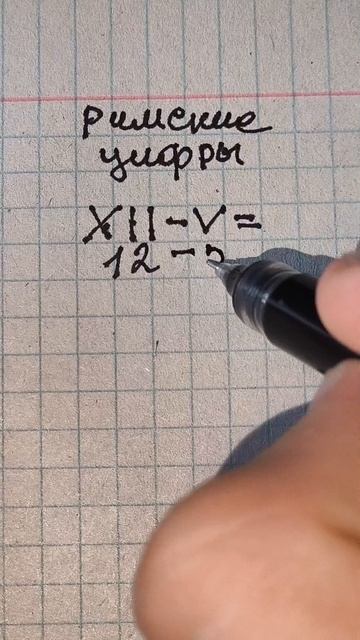 Римские
цифры
XII-V=
12-5